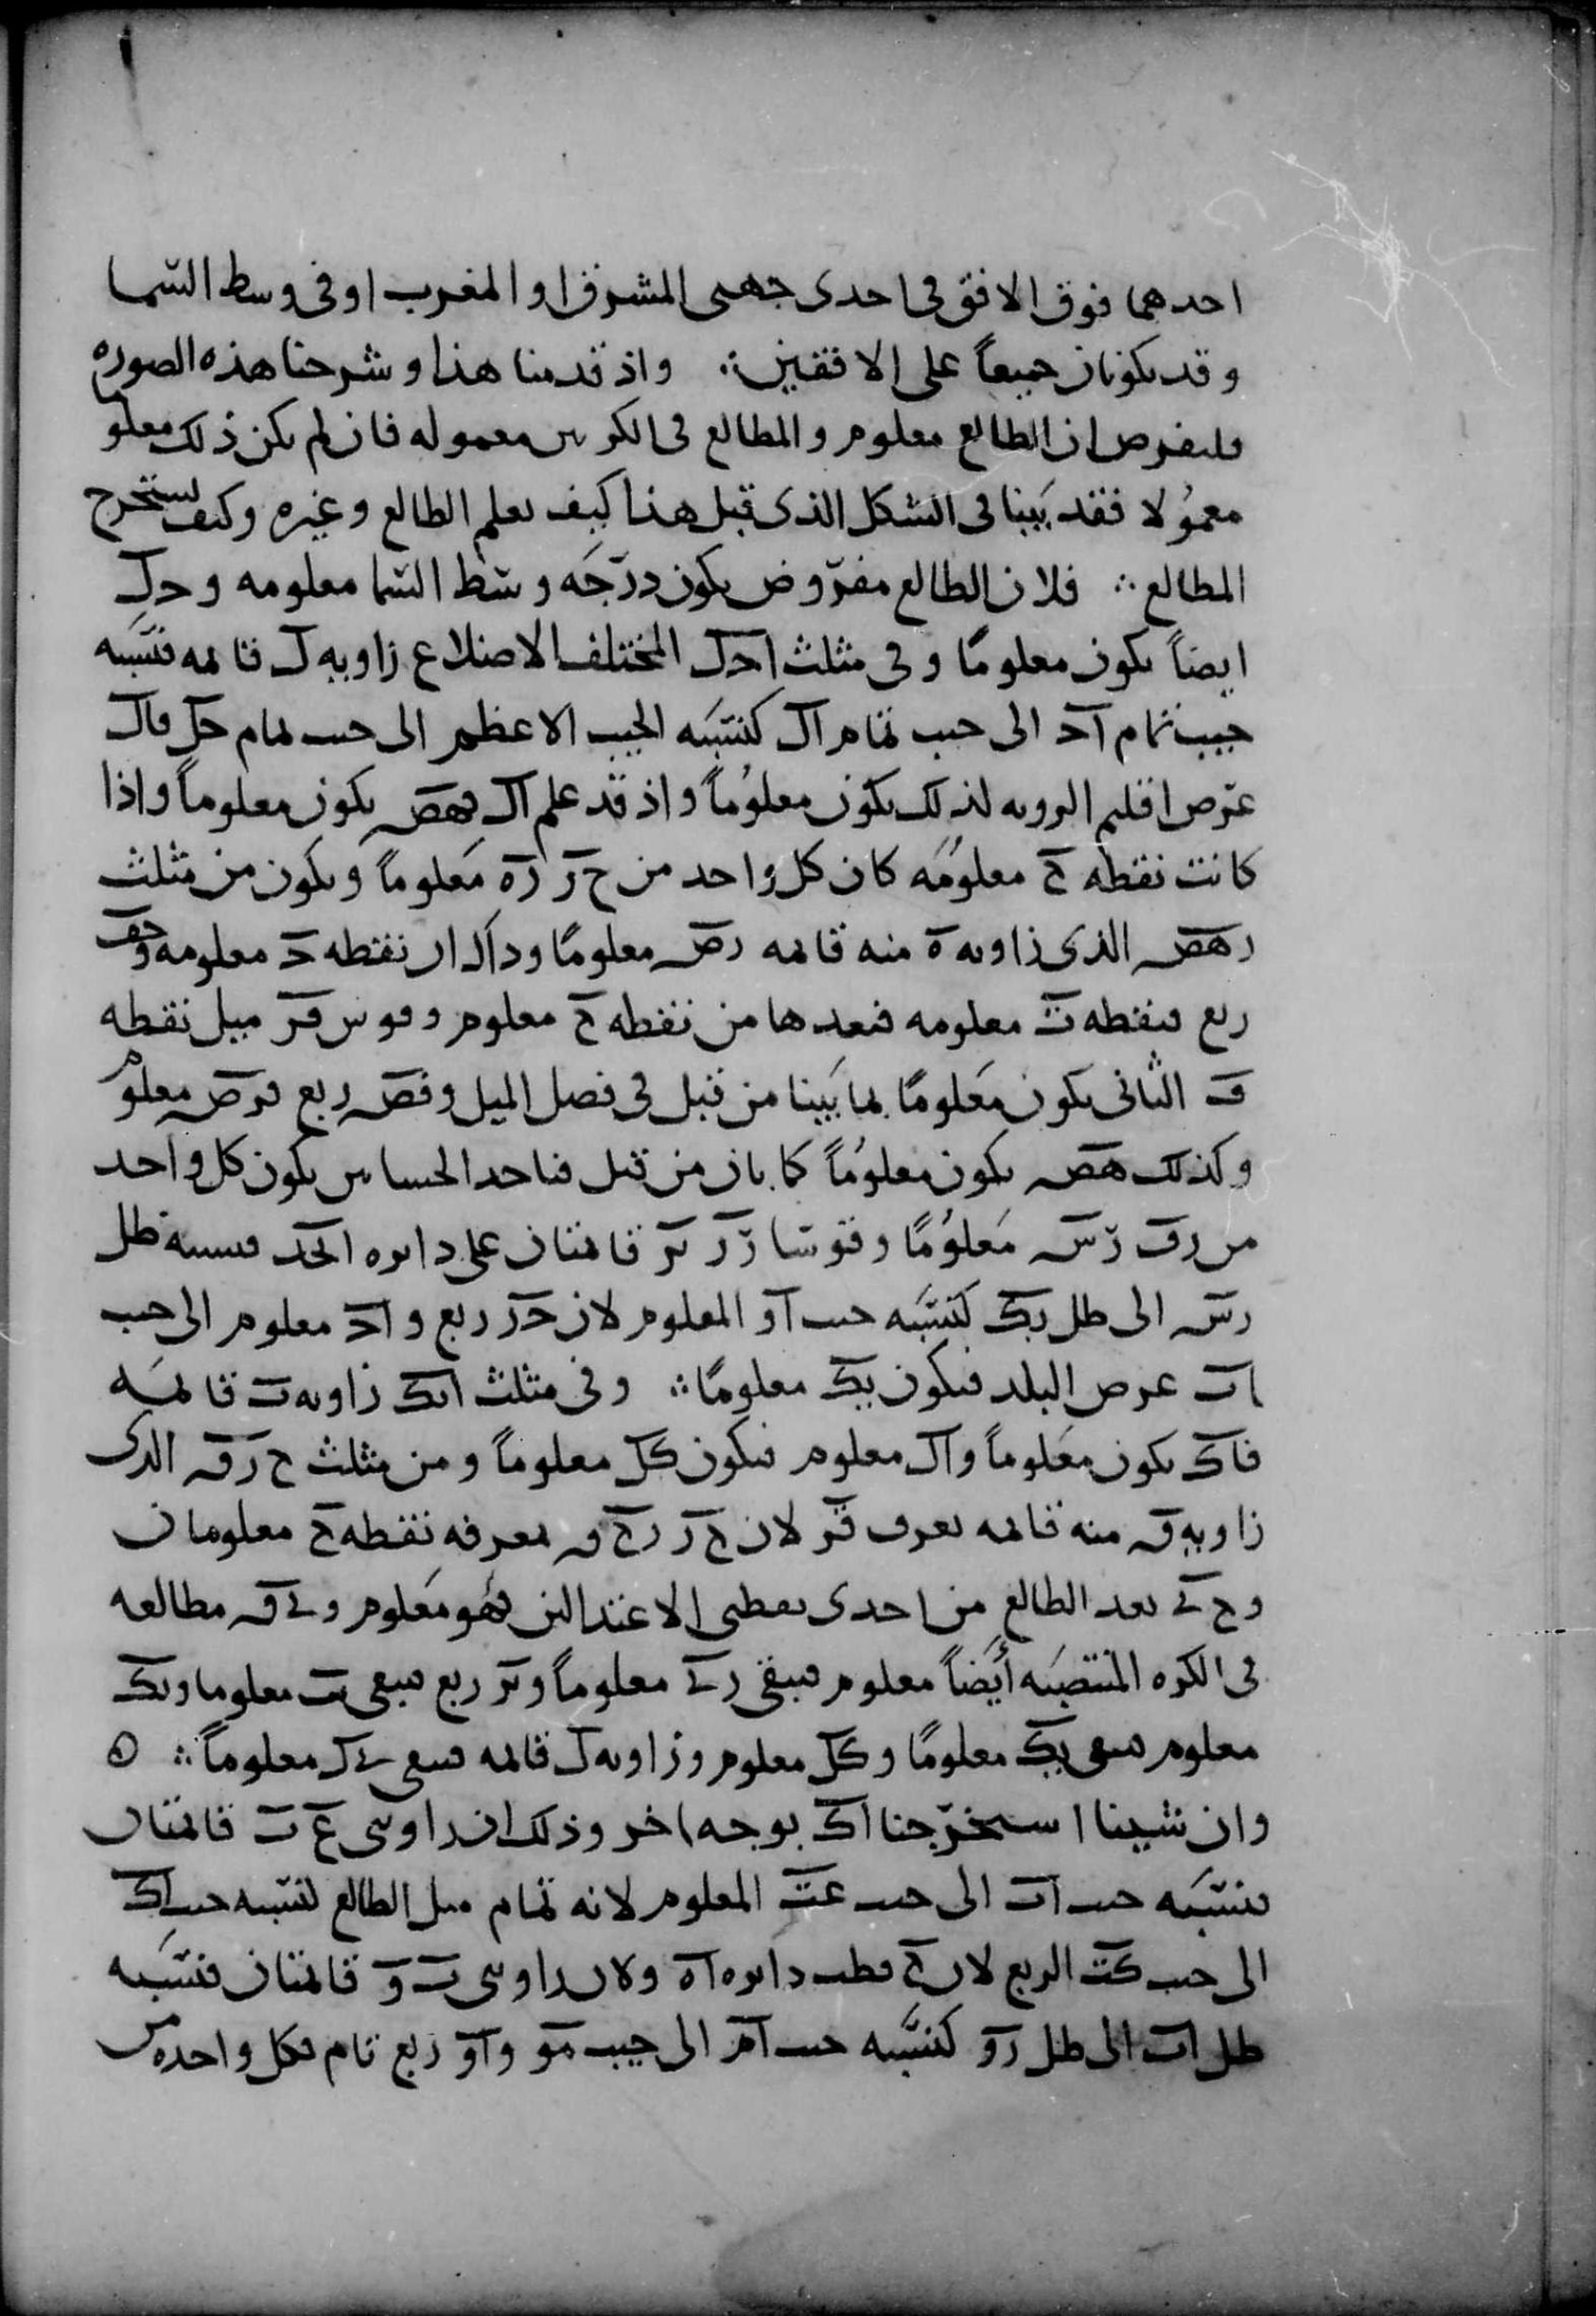 احدهما فوق الافق فى احدى جهتى المشرق او المغرب او فى وسط السما
وقد يكونان جميعاً على الافقين ؞ واذ قدمنا هذا وشرحنا هذه الصوره
فليفرض ان الطالع معلوم والمطالع فى الكرتين معموله فان لم يكن ذلك معلوما
معمولا فقد بينا فى الشكل الذى قبل هذا كيف نعلم الطالع وغيره وكيف نستخرج
المطالع ؞ فلان الطالع مفروض يكون درجه وسط السما معلومه وحل
ايضاً يكون معلوما وفى مثلث احل المختلف الاضلاع زاويه ل قائمه فنسبه
جيب تمام آح الى جيب تمام آل كنسبه الجيب الاعظم الى جيب تمام حل فال
عرض اقليم الرويه لذلك يكون معلوماً واذ قد علم ال فهص يكون معلوماً واذا
كانت نقطه ح معلومه كان كل واحد من ح ز زه معلوماً ويكون من مثلث
زهص الذى زاويه ه منه قائمه زص معلوما ولان نقطه ح معلومه وحف
ربع فنقطه ف معلومه فبعدها من نقطه ح معلوم وقوس فر ميل نقطه
ف الثانى يكون معلوما بما بينا من قبل فى فصل الميل وفص ربع فرص معلوم
وكذلك هص يكون معلوماً كما بان من قبل فباحد الحسابين يكون كل واحد
من رف رس معلوما وقوسا رز تر قائمتان على دايره الحد فنسبه ظل
رس الى ظل بك كنسبه جيب آو المعلوم لان حز ربع واح معلوم الى جيب
ات عرض البلد فيكون بك معلوما ؞ وفى مثلث ابك زاويه ب قائمه
فاك يكون معلوماً وال معلوم فيكون كل معلوماً ومن مثلث ح ز ق الذى
زاويه ق منه قائمه نعرف قز لان ح ز زح ق بمعرفه نقطه ح معلومان
وح ى بعد الطالع من احدى نقطتى الاعتدالين فهو معلوم وى ق مطالعه
فى الكره المنتصبه أيضاً معلوم فيبقى ز ى معلوماً وتز ربع فيبقى يت معلوما وتك
معلوم فيبقى يك معلوما وكل معلوم وزاويه ل قائمه فيبقى ى ل معلوماً ؞ ه
وان شينا استخرجنا اك بوجه اخر وذلك ان زاويتى ع ت قائمتان
فنسبه جيب ات الى جيب عت المعلوم لانه تمام ميل الطالع كنسبه جيب اك
الى جيب كت الربع لان ح قطب دايره اه ولان زاويتى ت و قائمتان فنسبه
ظل ات الى ظل رو كنسبه جيب آم الى جيب مو وآو ربع تام فكل واحده من